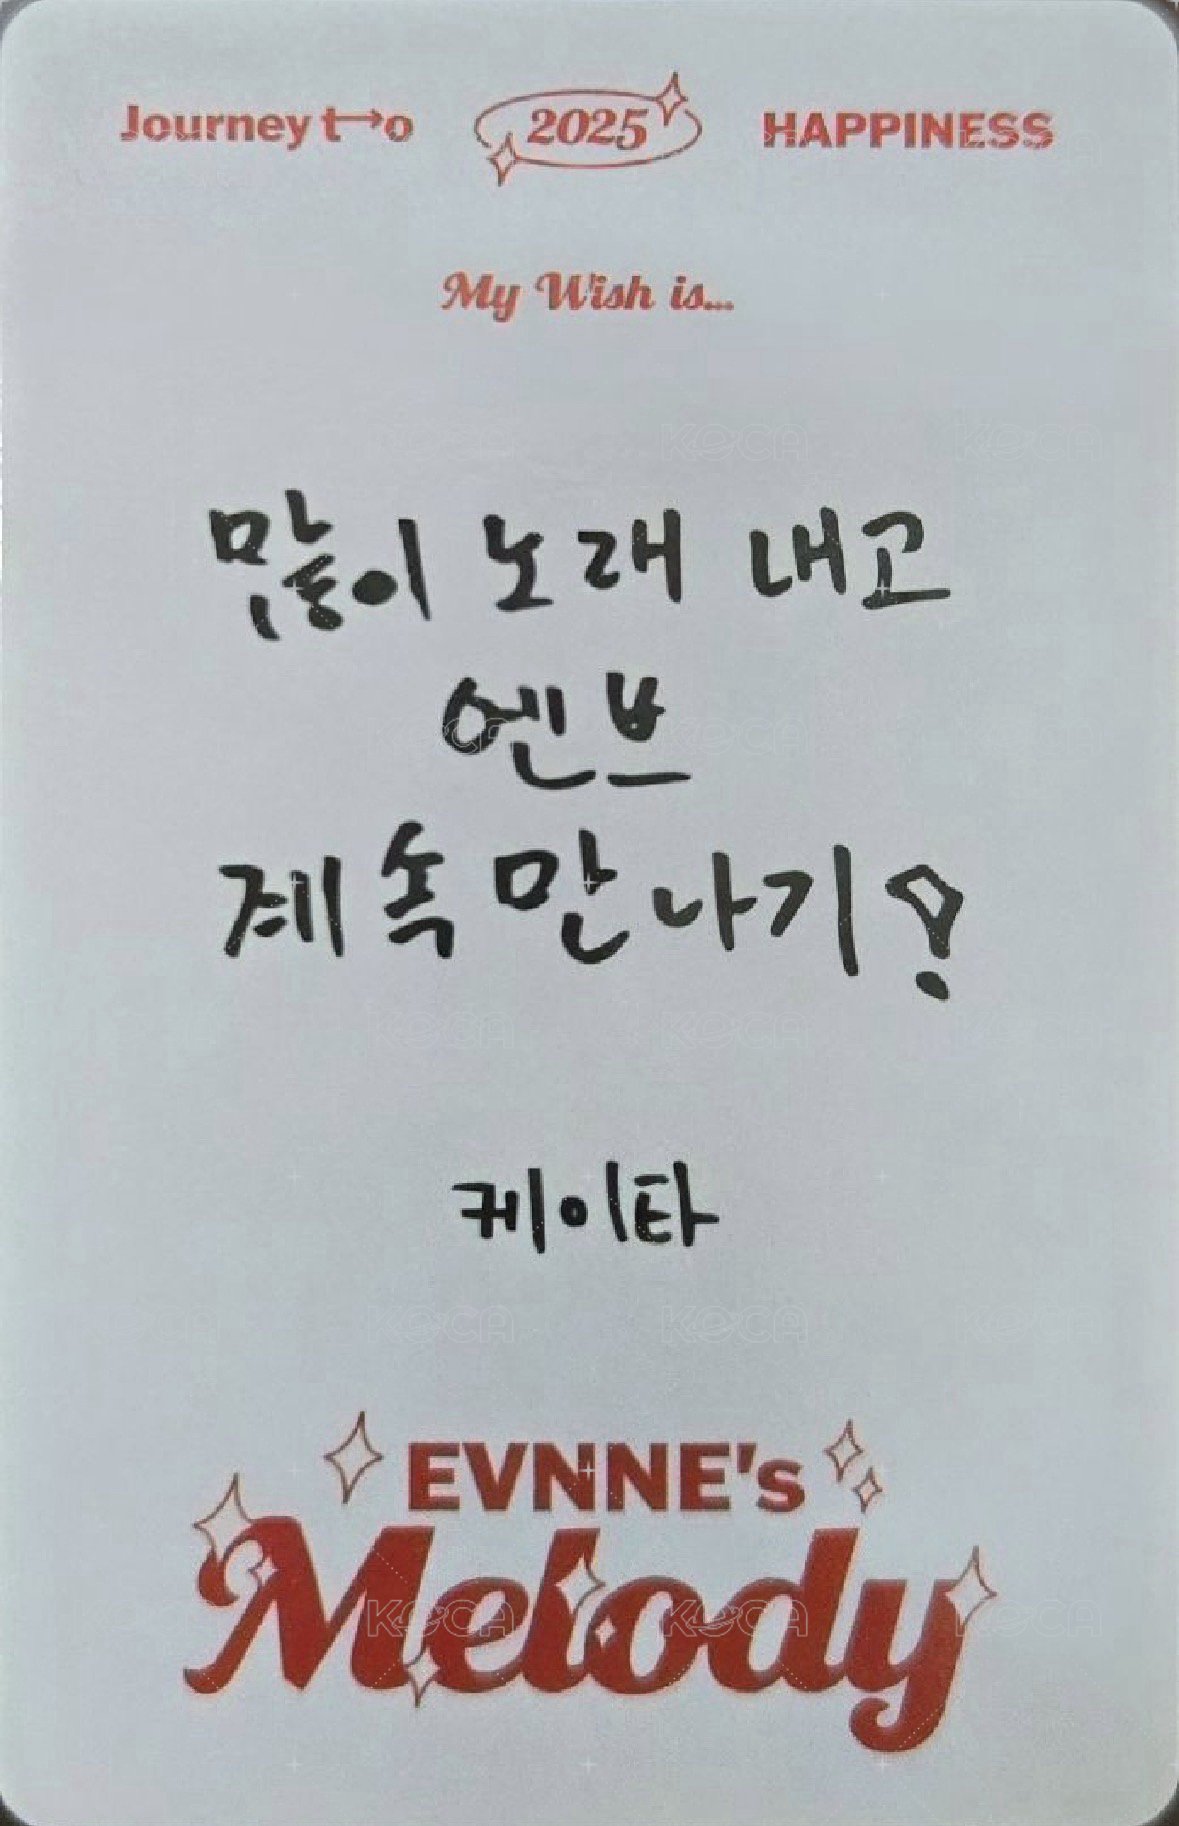 Journey to 2025 HAPPINESS
My Wish is...
많이 노래 내고
엔브
계속 만나기?
케이타
EVNNE's
Melody
KOCA